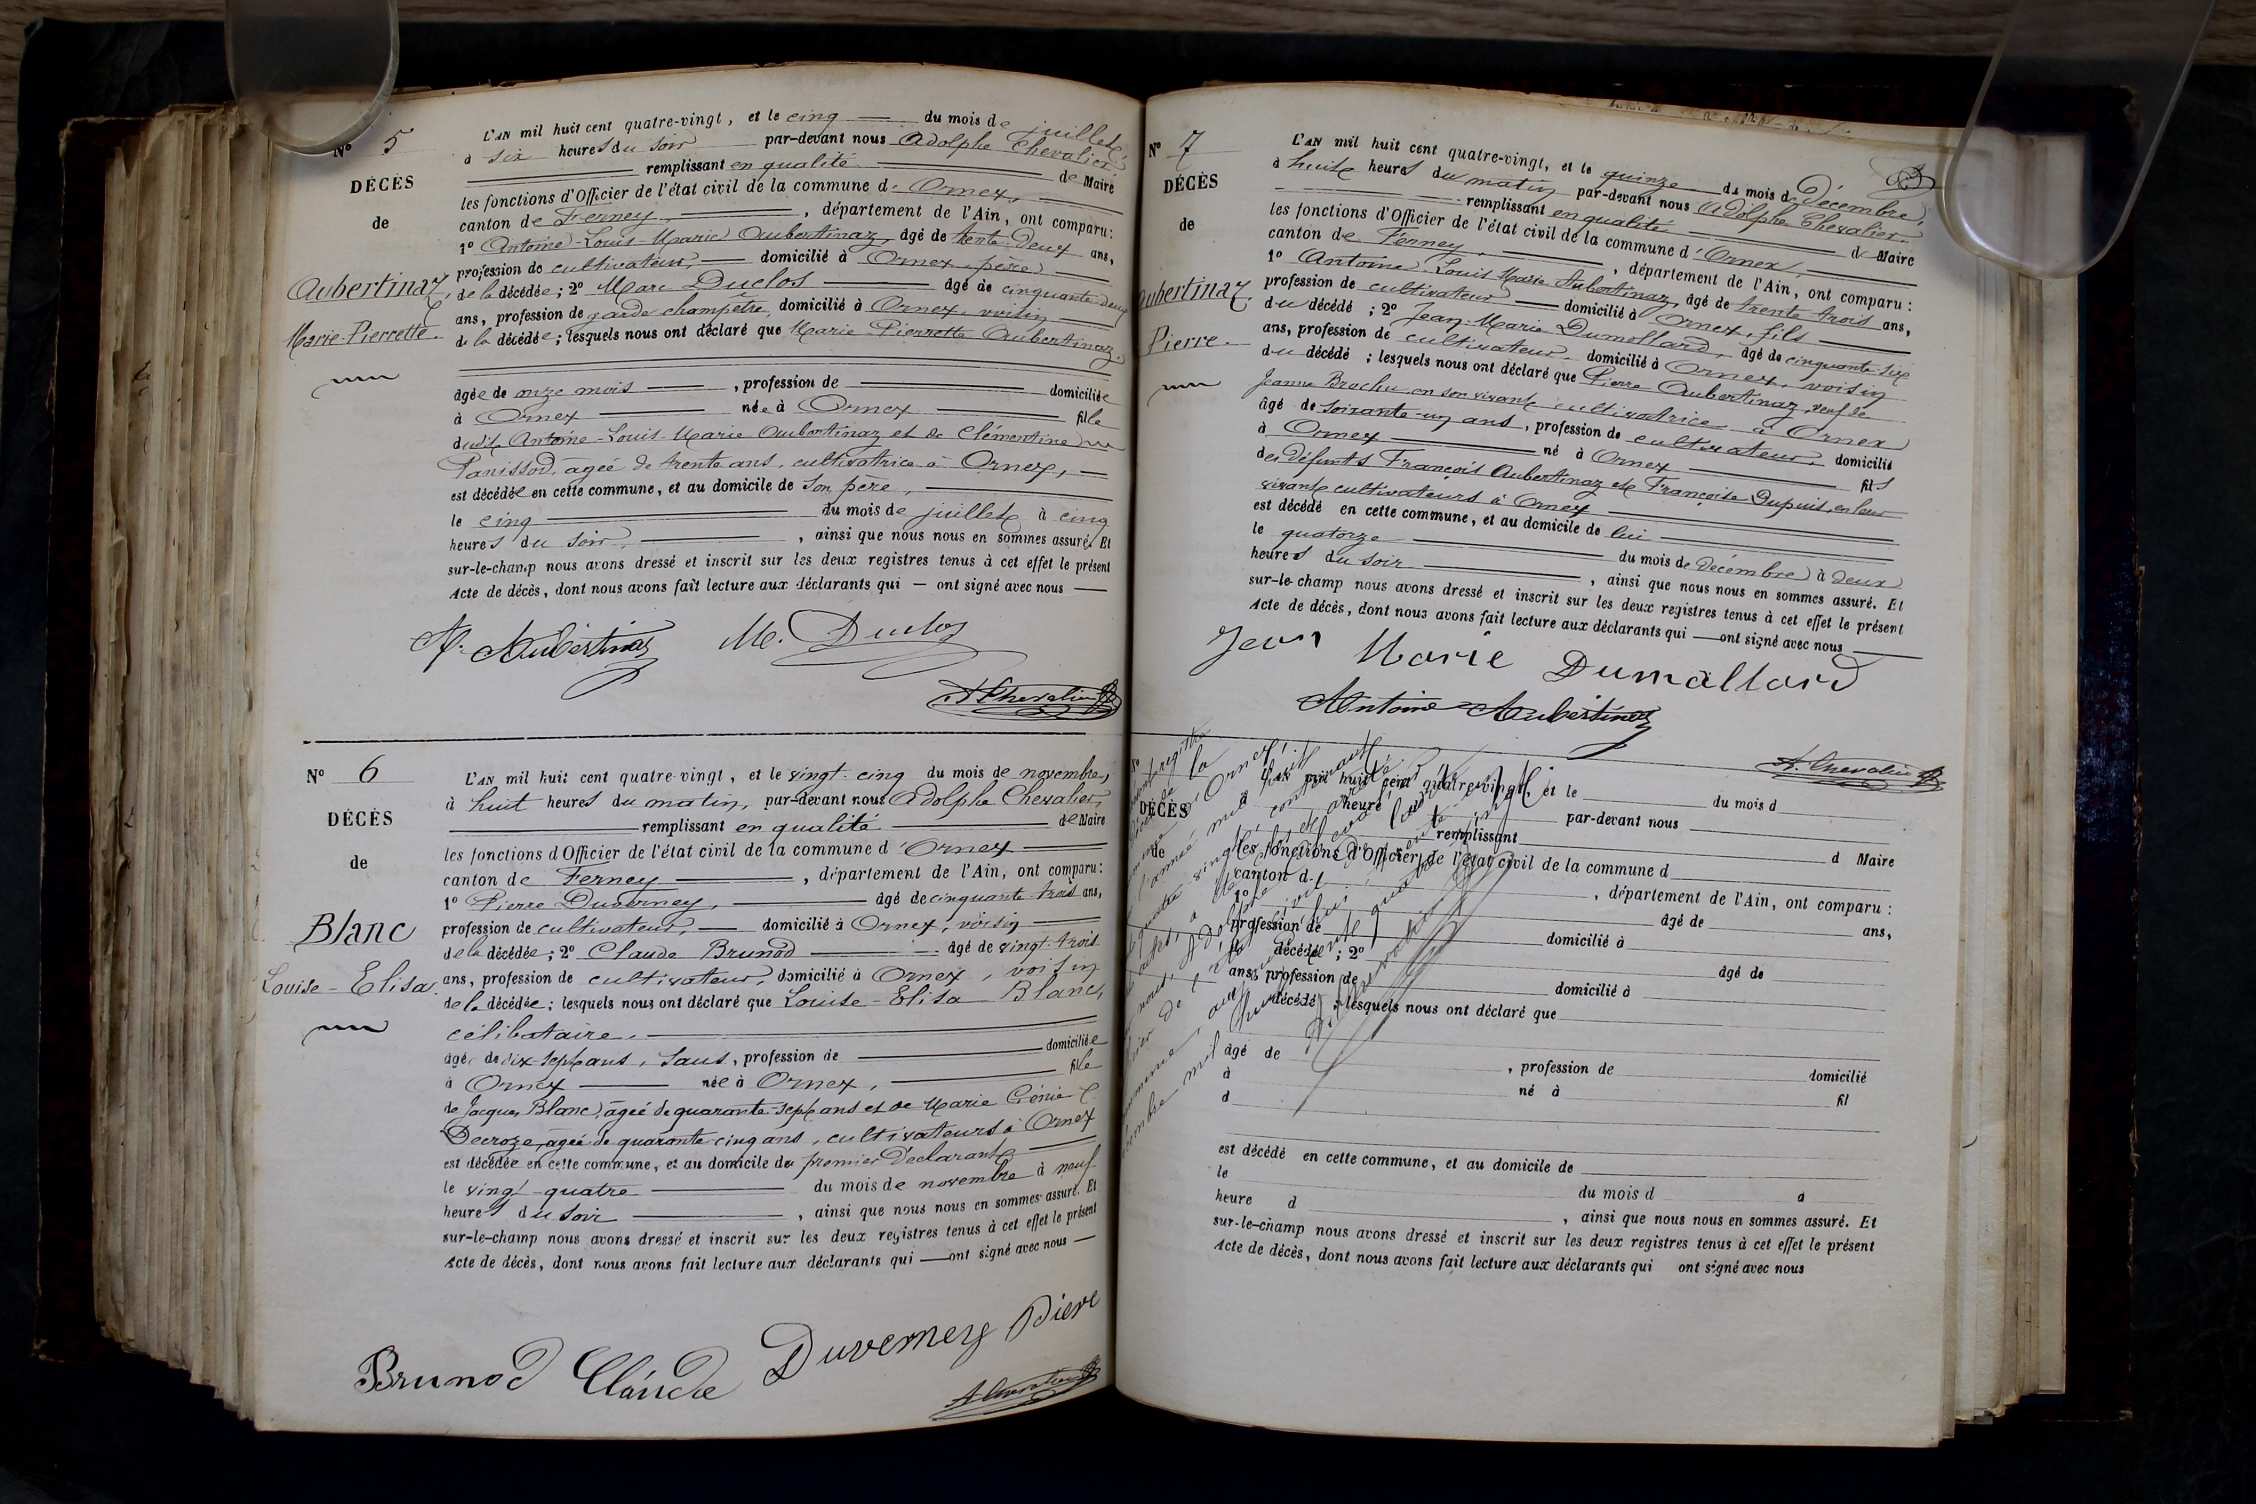 N° 5
DÉCÈS
de
Aubertinaz,
Marie-Pierrette.
L'AN mil huit cent quatre-vingt, et le cinq du mois de juillet,
à six heures du soir par-devant nous Adolphe Chevalier
remplissant en qualité de Maire
les fonctions d'Officier de l'état civil de la commune d'Ornex,
canton de Ferney, département de l'Ain, ont comparu:
1° Antoine-Louis-Marie Aubertinaz, âgé de trente-deux ans,
profession de cultivateur, domicilié à Ornex, père
de la décédée; 2° Marc Duclos âgé de cinquante-deux
ans, profession de garde champêtre, domicilié à Ornex, voisin
de la décédée; lesquels nous ont déclaré que Marie Pierrette Aubertinaz,
âgée de onze mois, profession de domiciliée
à Ornex née à Ornex fille
dudit Antoine-Louis-Marie Aubertinaz et de Clémentine
Panissod, âgée de trente ans, cultivatrice à Ornex,
est décédée en cette commune, et au domicile de son père,
le cinq du mois de juillet à cinq
heures du soir, ainsi que nous nous en sommes assuré. Et
sur-le-champ nous avons dressé et inscrit sur les deux registres tenus à cet effet le présent
Acte de décès, dont nous avons fait lecture aux déclarants qui — ont signé avec nous —
A. Aubertinaz M. Duclos
A. Chevalier
N° 6
DÉCÈS
de
Blanc
Louise-Elisa
L'AN mil huit cent quatre-vingt, et le vingt-cinq du mois de novembre,
à huit heures du matin, par-devant nous Adolphe Chevalier,
remplissant en qualité de Maire
les fonctions d'Officier de l'état civil de la commune d'Ornex
canton de Ferney, département de l'Ain, ont comparu:
1° Pierre Duverney, âgé de cinquante-trois ans,
profession de cultivateur, domicilié à Ornex, voisin
de la décédée; 2° Claude Brunod âgé de vingt-trois
ans, profession de cultivateur, domicilié à Ornex, voisin
de la décédée; lesquels nous ont déclaré que Louise-Elisa Blanc,
célibataire,
âgée de dix-sept ans, sans, profession de domiciliée
à Ornex née à Ornex, fille
de Jacques Blanc, âgé de quarante-sept ans et de Marie
Decroze, âgée de quarante-cinq ans, cultivateurs à Ornex
est décédée en cette commune, et au domicile du premier Déclarant
le vingt-quatre du mois de novembre à neuf
heures du soir, ainsi que nous nous en sommes assuré. Et
sur-le-champ nous avons dressé et inscrit sur les deux registres tenus à cet effet le présent
Acte de décès, dont nous avons fait lecture aux déclarants qui — ont signé avec nous —
Brunod Claude Duverney Piere
A. Chevalier
N° 7
DÉCÈS
de
Aubertinaz,
Pierre.
L'AN mil huit cent quatre-vingt, et le quinze du mois de Décembre,
à huit heures du matin par-devant nous Adolphe Chevalier
remplissant en qualité de Maire
les fonctions d'Officier de l'état civil de la commune d'Ornex,
canton de Ferney, département de l'Ain, ont comparu:
1° Antoine-Louis Marie Aubertinaz, âgé de trente-trois ans,
profession de cultivateur domicilié à Ornex, fils
du décédé; 2° Jean-Marie Dumollard, âgé de cinquante-six
ans, profession de cultivateur, domicilié à Ornex, voisin
du décédé; lesquels nous ont déclaré que Pierre Aubertinaz, veuf de
Jeanne Brochu en son vivant cultivatrice à Ornex
âgé de soixante-un ans, profession de cultivateur, domicilié
à Ornex né à Ornex fils
des défunts François Aubertinaz et Françoise Dupuis, en leur
vivant cultivateurs à Ornex
est décédé en cette commune, et au domicile de lui
le quatorze du mois de décembre à deux
heures du soir, ainsi que nous nous en sommes assuré. Et
sur-le-champ nous avons dressé et inscrit sur les deux registres tenus à cet effet le présent
Acte de décès, dont nous avons fait lecture aux déclarants qui — ont signé avec nous
Jean Marie Dumallard
Antoine Aubertinaz
A. Chevalier
DÉCÈS
de
L'AN mil huit cent quatre-vingt, et le du mois d
à heure par-devant nous
remplissant d Maire
les fonctions d'Officier de l'état civil de la commune d
canton d , département de l'Ain, ont comparu:
1° âgé de ans,
profession de domicilié à
décédé; 2° âgé de
ans, profession de domicilié à
décédé; lesquels nous ont déclaré que
âgé de , profession de domicilié
à né à fil
d
est décédé en cette commune, et au domicile de
le du mois d à
heure d , ainsi que nous nous en sommes assuré. Et
sur-le-champ nous avons dressé et inscrit sur les deux registres tenus à cet effet le présent
Acte de décès, dont nous avons fait lecture aux déclarants qui ont signé avec nous